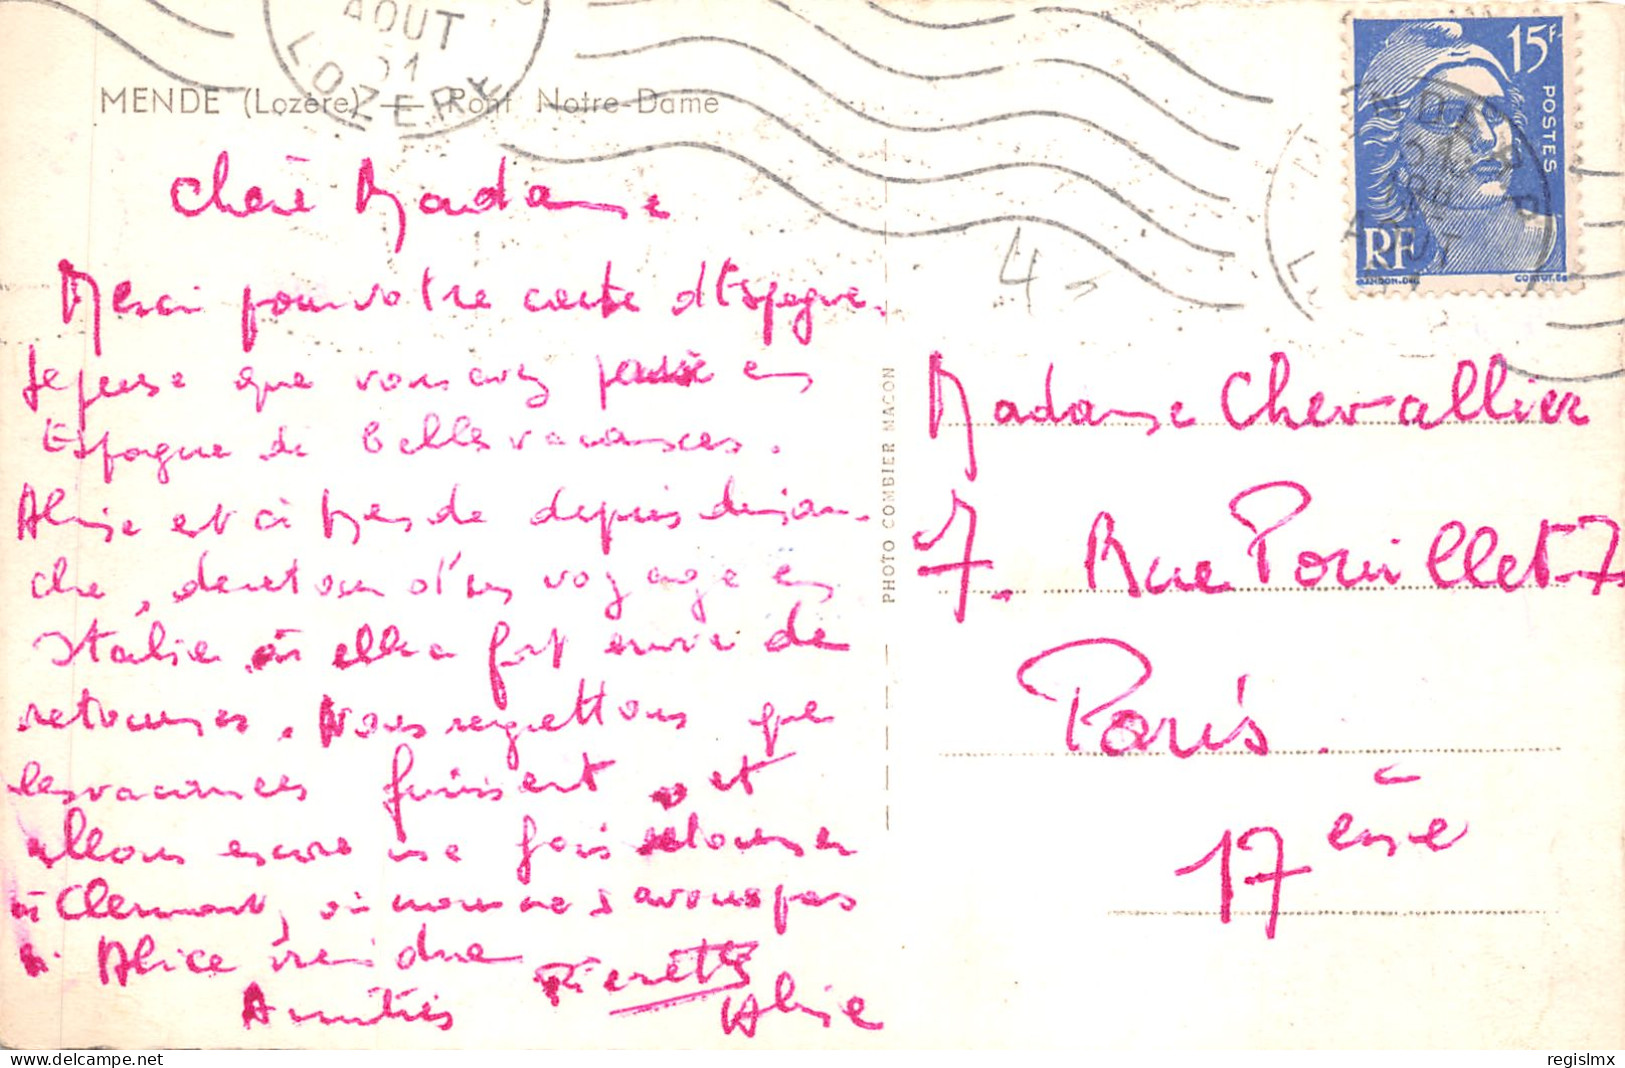 MENDE (Lozère) — Pont Notre-Dame
AOUT
51
LOZERE
15F
POSTES
RF
GANDON.DEL.
CORTOT.SC
AOUT
4
Chère Madame
Merci pour votre carte d'Espagne.
Je pense que vous avez passé en
Espagne de belles vacances.
Alice est à Mende depuis diman-
che, de retour d'un voyage en
Italie où elle a fort envie de
retourner. Nous regrettons que
les vacances finissent et
allons encore une fois retourner
à Clermont, où nous ne savons pas
Alice viendra
Amitiés Pierrette
Alice
PHOTO COMBIER MACON
Madame Chevallier
7. Rue Pouillet 7
Paris.
17 ème
regislmx